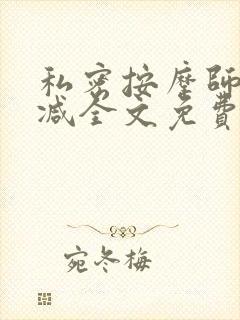 私密按摩師
减全文免費
宛冬梅